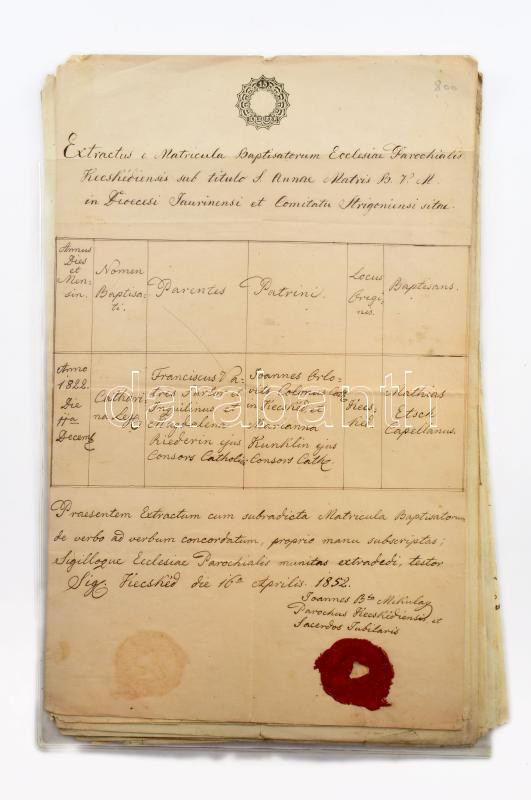 800
Extractus e Matricula Baptisatorum Ecclesiae Parochialis
Kecskédiensis sub titulo S. Annae Matris B. V. M.
in Dioecesi Jaurinensi et Comitatu Strigoniensi sitae.
Annus
Dies
et
Men-
sis.
Nomen
Baptisa-
ti.
Parentes
Patrini.
Locus
Origi-
nes.
Baptisans.
Anno
1822.
Die
11a
Decemb
Cathari-
na Leg.
Franciscus
Inquilinus et
Magdolena
Riederin ejus
Consors Catholic.
Joannes Orlo-
vits Colonus Cath
in Kecskéd et
Marianna
Kunklin ejus
Consors Cath.
Kecs-
kéd.
Mathias
Etsch
Capellanus.
darabanth
Praesentem Extractum cum subradicta Matricula Baptisatorum
de verbo ad verbum concordatum, proprio manu subscriptas;
Sigilloque Ecclesiae Parochialis munitas extradedi, testor
Sig. Kecskéd die 16a Aprilis. 1852.
Joannes Bto Mikulay
Parochus Kecskédiensis et
Sacerdos Jubilaris